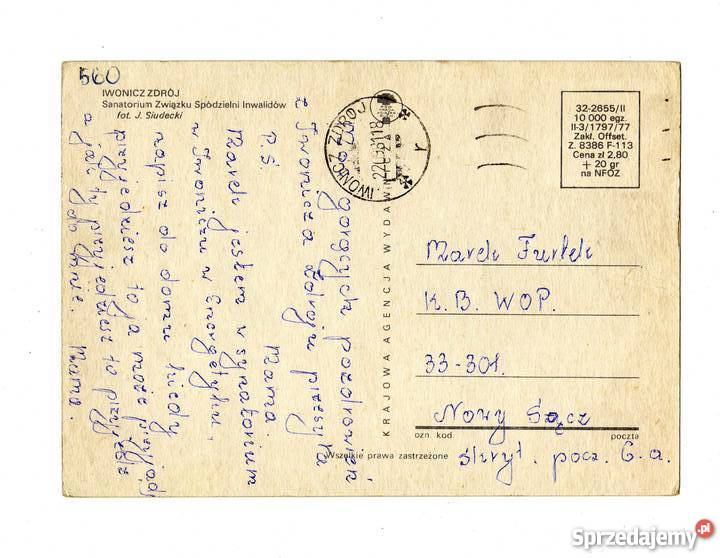 560
IWONICZ ZDRÓJ
Sanatorium Związku Spółdzielni Inwalidów
fot. J. Siudecki
IWONICZ ZDRÓJ
32-2655/II
10 000 egz.
II-3/1797/77
Zakł. Offset.
Z. 8386 F-113
Cena zł 2,80
+ 20 gr
na NFOZ
gorących pozdrowień
z Iwonicza Zdroju przesyła
Mama.
P.S.
Marek jestem w synatorium
w Iwoniczu w Energetyku.
napisz do domu kiedy
przyjedziesz to ja może
a jak ty przyjedziesz to
do mnie. Mama.
KRAJOWA AGENCJA WYDAWNICZA
Marek Furtek
K.B. WOP.
33-301.
Nowy Sącz
ozn. kod. poczta
Wszelkie prawa zastrzeżone
skryt. pocz. 6.a.
Sprzedajemy.pl